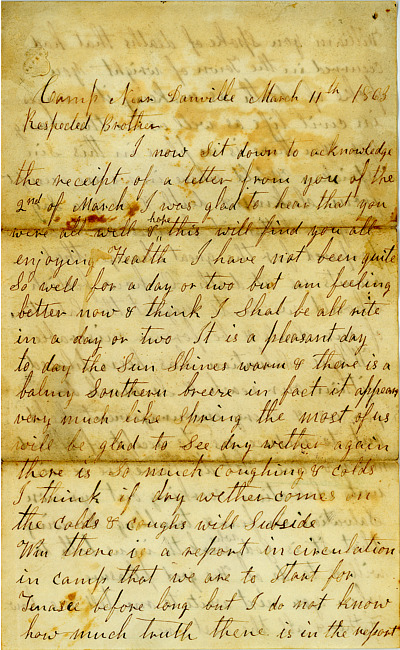 Camp Near Danville March 11th 1863
Respected Brother
I now sit down to acknowledge
the receipt of a letter from you of the
2nd of March I was glad to hear that you
were all well & hope this will find you all
enjoying Health I have not been quite
So well for a day or two but am feeling
better now & think I Shal be all rite
in a day or two It is a pleasant day
to day the Sun Shines warm & there is a
balmy Southern breeze in fact it appears
very much like Spring the most of us
will be glad to See dry wether again
there is So much Coughing & colds
I think if dry wether comes on
the colds & coughs will Subside
Wm there is a report in circulation
in camp that we are to Start for
Tenasee before long but I do not know
how much truth there is in the report